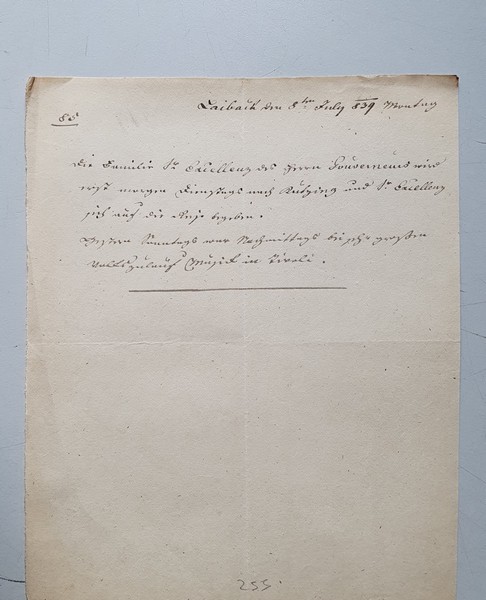 Laibach den 8ten July 839 Montag
85
Die Familie Sr Excellenz des Herrn Gouverneurs wird
erst morgen Dienstags nach und Sr Excellenz
sich auf die Reise begeben.
Gestern Sonntags war Nachmittags bei sehr großem
Volkszulauf Musick in Tivoli.
255.